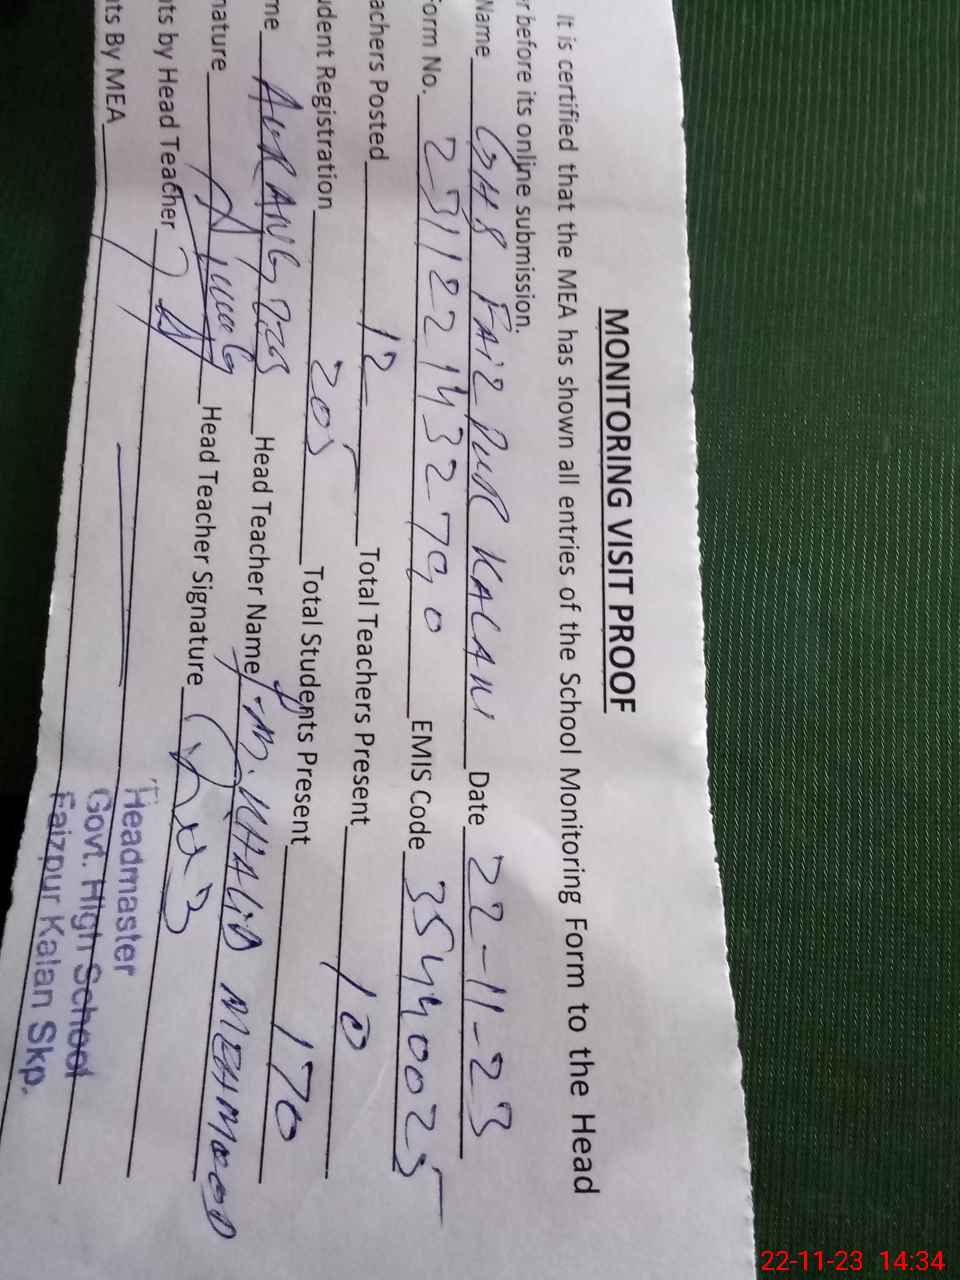 MONITORING VISIT PROOF
It is certified that the MEA has shown all entries of the School Monitoring Form to the Head
r before its online submission.
Name GHS FAIZ PUR KALAN Date 22-11-23
orm No. 23112214327 90 EMIS Code 35440025
achers Posted 12 Total Teachers Present 10
udent Registration 205 Total Students Present 170
me AURANGZEB Head Teacher Name M. KHALID MEHMOOD
nature Head Teacher Signature
nts by Head Teacher
nts By MEA
Headmaster
Govt. High School
Faizpur Kalan Skp.
22-11-23 14:34